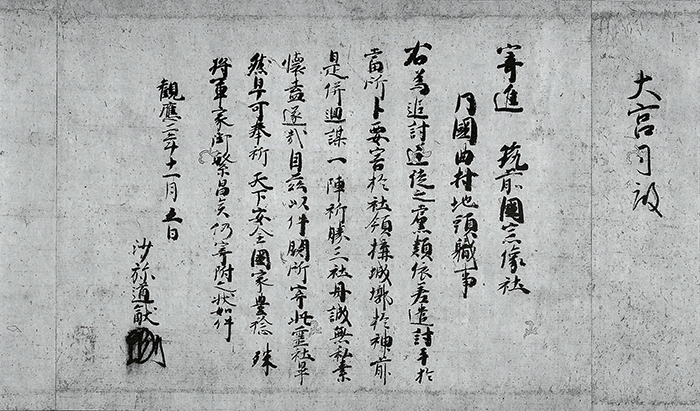 寄進　筑前國宗像社
同國曲村地頭職事
右為追討逆徒之黨類依差遣討手於
當所卜要害於社領構城墎於神前
是併廻謀一陣祈勝三社丹誠無私素
懐盍遂哉自茲以件闕所寄此霊社早
然早可奉祈天下安全國家豊稔殊
将軍家御繁昌矣仍寄附之状如件
觀應二年十一月五日
沙弥道猷
大宮司殿